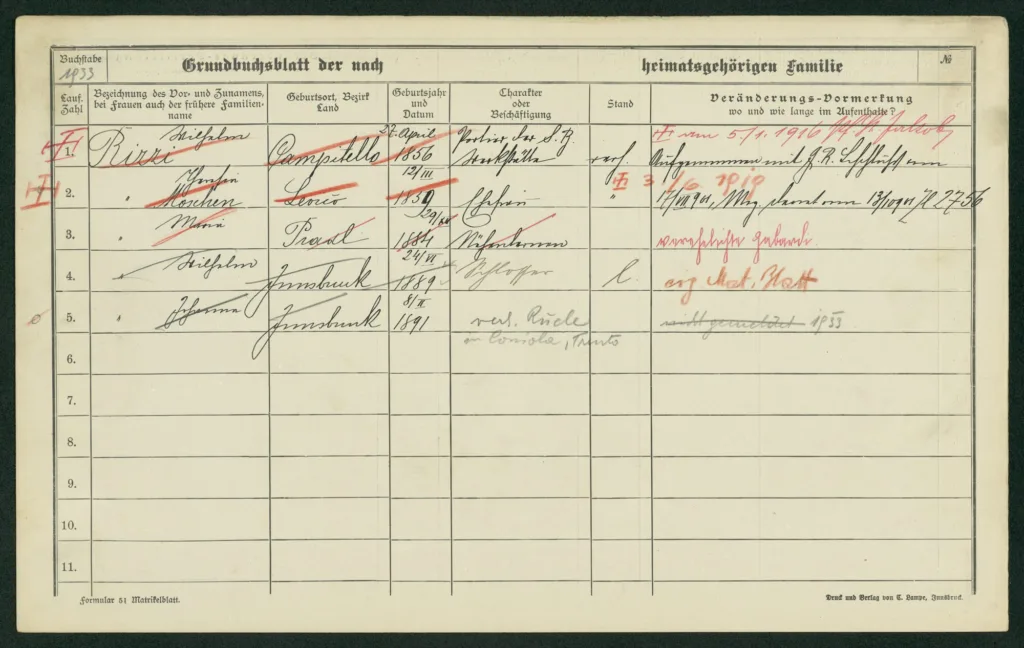 Buchstabe
1933
Grundbuchsblatt der nach heimatsgehörigen Familie
№
Lauf. Zahl
Bezeichnung des Vor- und Zunamens,
bei Frauen auch der frühere Familien-
name
Geburtsort, Bezirk
Land
Geburtsjahr
und
Datum
Charakter
oder
Beschäftigung
Stand
Veränderungs-Vormerkung
wo und wie lange im Aufenthalte?
1.
Rizzi Wilhelm
Campitello
27. April
1856
Portier der S. B.
Werkstätte
verh.
am 5/1. 1916
Aufgenommen mit
2.
" Moschen
Levico
12/III
1859
Ehefrau
"
3 1919
17/VII 901, 13/10 901 Zl 2756
3.
" Maria
Pradl
1884
Näherinnen
verehelichte
4.
" Wilhelm
Innsbruck
24/VI
1889
Schlosser
l.
eig. Mat. Blatt
5.
"
Innsbruck
8/II
1891
verh.
in Trento
nicht gemeldet 1933
6.
7.
8.
9.
10.
11.
Formular 51 Matrikelblatt.
Druck und Verlag von C. Lampe, Innsbruck.